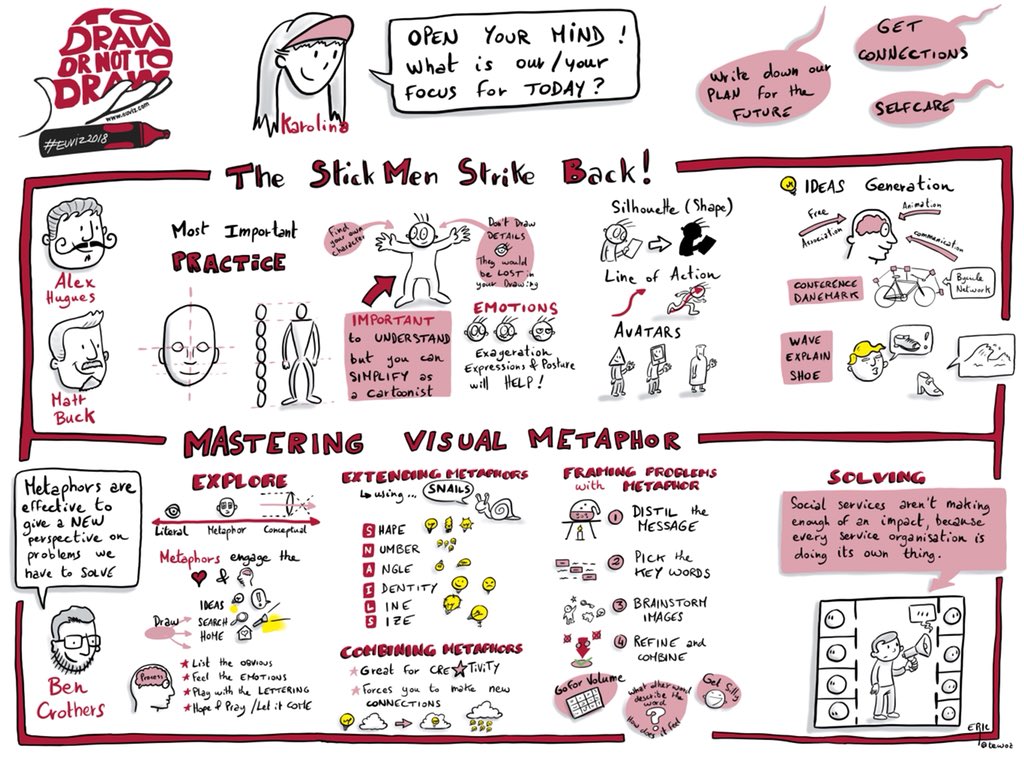 TO
DRAW
OR NOT TO
DRAW
www.euviz.com
#EUVIZ2018
Karolina
OPEN YOUR MIND!
What is our/your
FOCUS for TODAY?
Write down our
PLAN for the
FUTURE
GET
CONNECTIONS
SELFCARE
The Stick Men Strike Back!
Alex
Hugues
Matt
Buck
Most Important
PRACTICE
Find your own
Character
Don't Draw
DETAILS
They would
be LOST in
your Drawing
IMPORTANT
to UNDERSTAND
but you can
SIMPLIFY as
a cartoonist
EMOTIONS
Exageration
Expressions & Posture
will HELP!
Silhouette (Shape)
Line of Action
AVATARS
IDEAS Generation
Free
Association
Animation
communication
CONFERENCE
DANEMARK
Bycicle
Network
WAVE
EXPLAIN
SHOE
!
MASTERING VISUAL METAPHOR
Metaphors are
effective to
give a NEW
perspective on
problems we
have to SOLVE
Ben
Crothers
EXPLORE
Literal Metaphor Conceptual
Metaphors engage the
&
Draw
IDEAS
SEARCH
HOME
Process
List the OBVIOUS
Feel the EMOTIONS
Play with the LETTERING
Hope & Pray / Let it come
EXTENDING METAPHORS
using...
SNAILS
SHAPE
NUMBER
ANGLE
IDENTITY
LINE
SIZE
COMBINING METAPHORS
Great for CREATIVITY
Forces you to make new
CONNECTIONS
FRAMING PROBLEMS
with METAPHOR
1 DISTIL the
MESSAGE
2 PICK the
KEY WORDS
3 BRAINSTORM
IMAGES
4 REFINE and
COMBINE
Go For Volume
What other word
describe the
word
?
How does it feel
Get Silly
SOLVING
Social services aren't making
enough of an impact, because
every service organisation is
doing its own thing.
ERIC